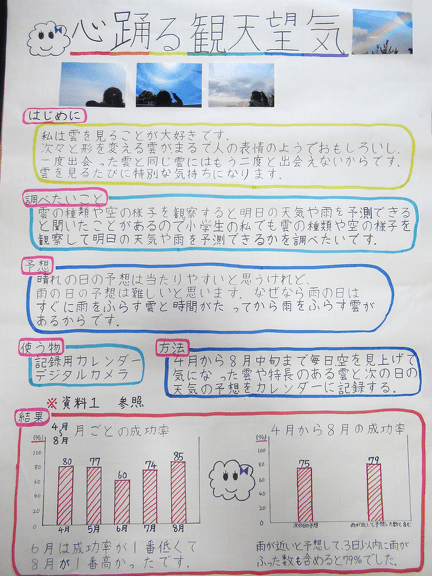 心踊る観天望気
はじめに
私は雲を見ることが大好きです.
次々と形を変える雲がまるで人の表情のようでおもしろいし,
一度出会った雲と同じ雲にはもう二度と出会えないからです.
雲を見るたびに特別な気持ちになります.
調べたいこと
雲の種類や空の様子を観察すると明日の天気や雨を予測できる
と聞いたことがあるので小学生の私でも雲の種類や空の様子を
観察して明日の天気や雨を予測できるかを調べたいです.
予想
晴れの日の予想は当たりやすいと思うけれど,
雨の日の予想は難しいと思います. なぜなら雨の日は
すぐに雨をふらす雲と時間がたってから雨をふらす雲が
あるからです.
使う物
記録用カレンダー
デジタルカメラ
方法
4月から8月中旬まで毎日空を見上げて
気になった雲や特長のある雲と次の日の
天気の予想をカレンダーに記録する.
※資料1 参照
結果
4月~8月 月ごとの成功率
(%)
100
80 77 60 74 85
4月 5月 6月 7月 8月
6月は成功率が1番低くて
8月が1番高かったです.
4月から8月の成功率
(%)
100
75 79
次の日の予想
雨が近いと予想して,3日以内に雨が
ふった数も含めると79%でした.